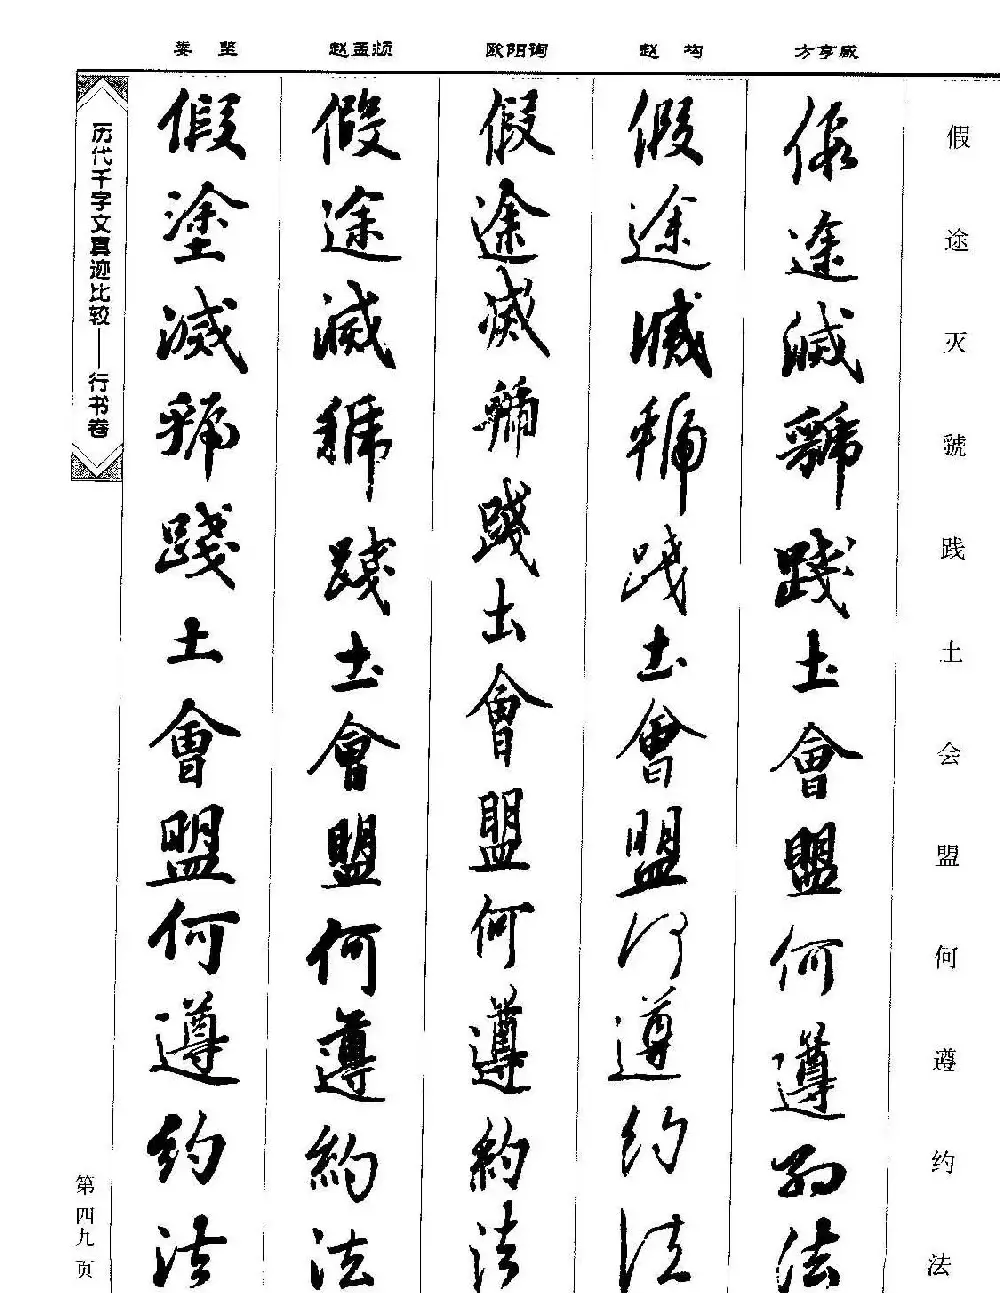 娄坚 赵孟頫 欧阳询 赵构 方亨咸
假途灭虢践土会盟何遵约法
假途滅虢踐土會盟何遵約法
假途滅虢踐土會盟何遵約法
假途滅虢踐土會盟何遵約法
假途滅虢踐土會盟何遵約法
假塗滅虢踐土會盟何遵約法
历代千字文真迹比较——行书卷
第四九页